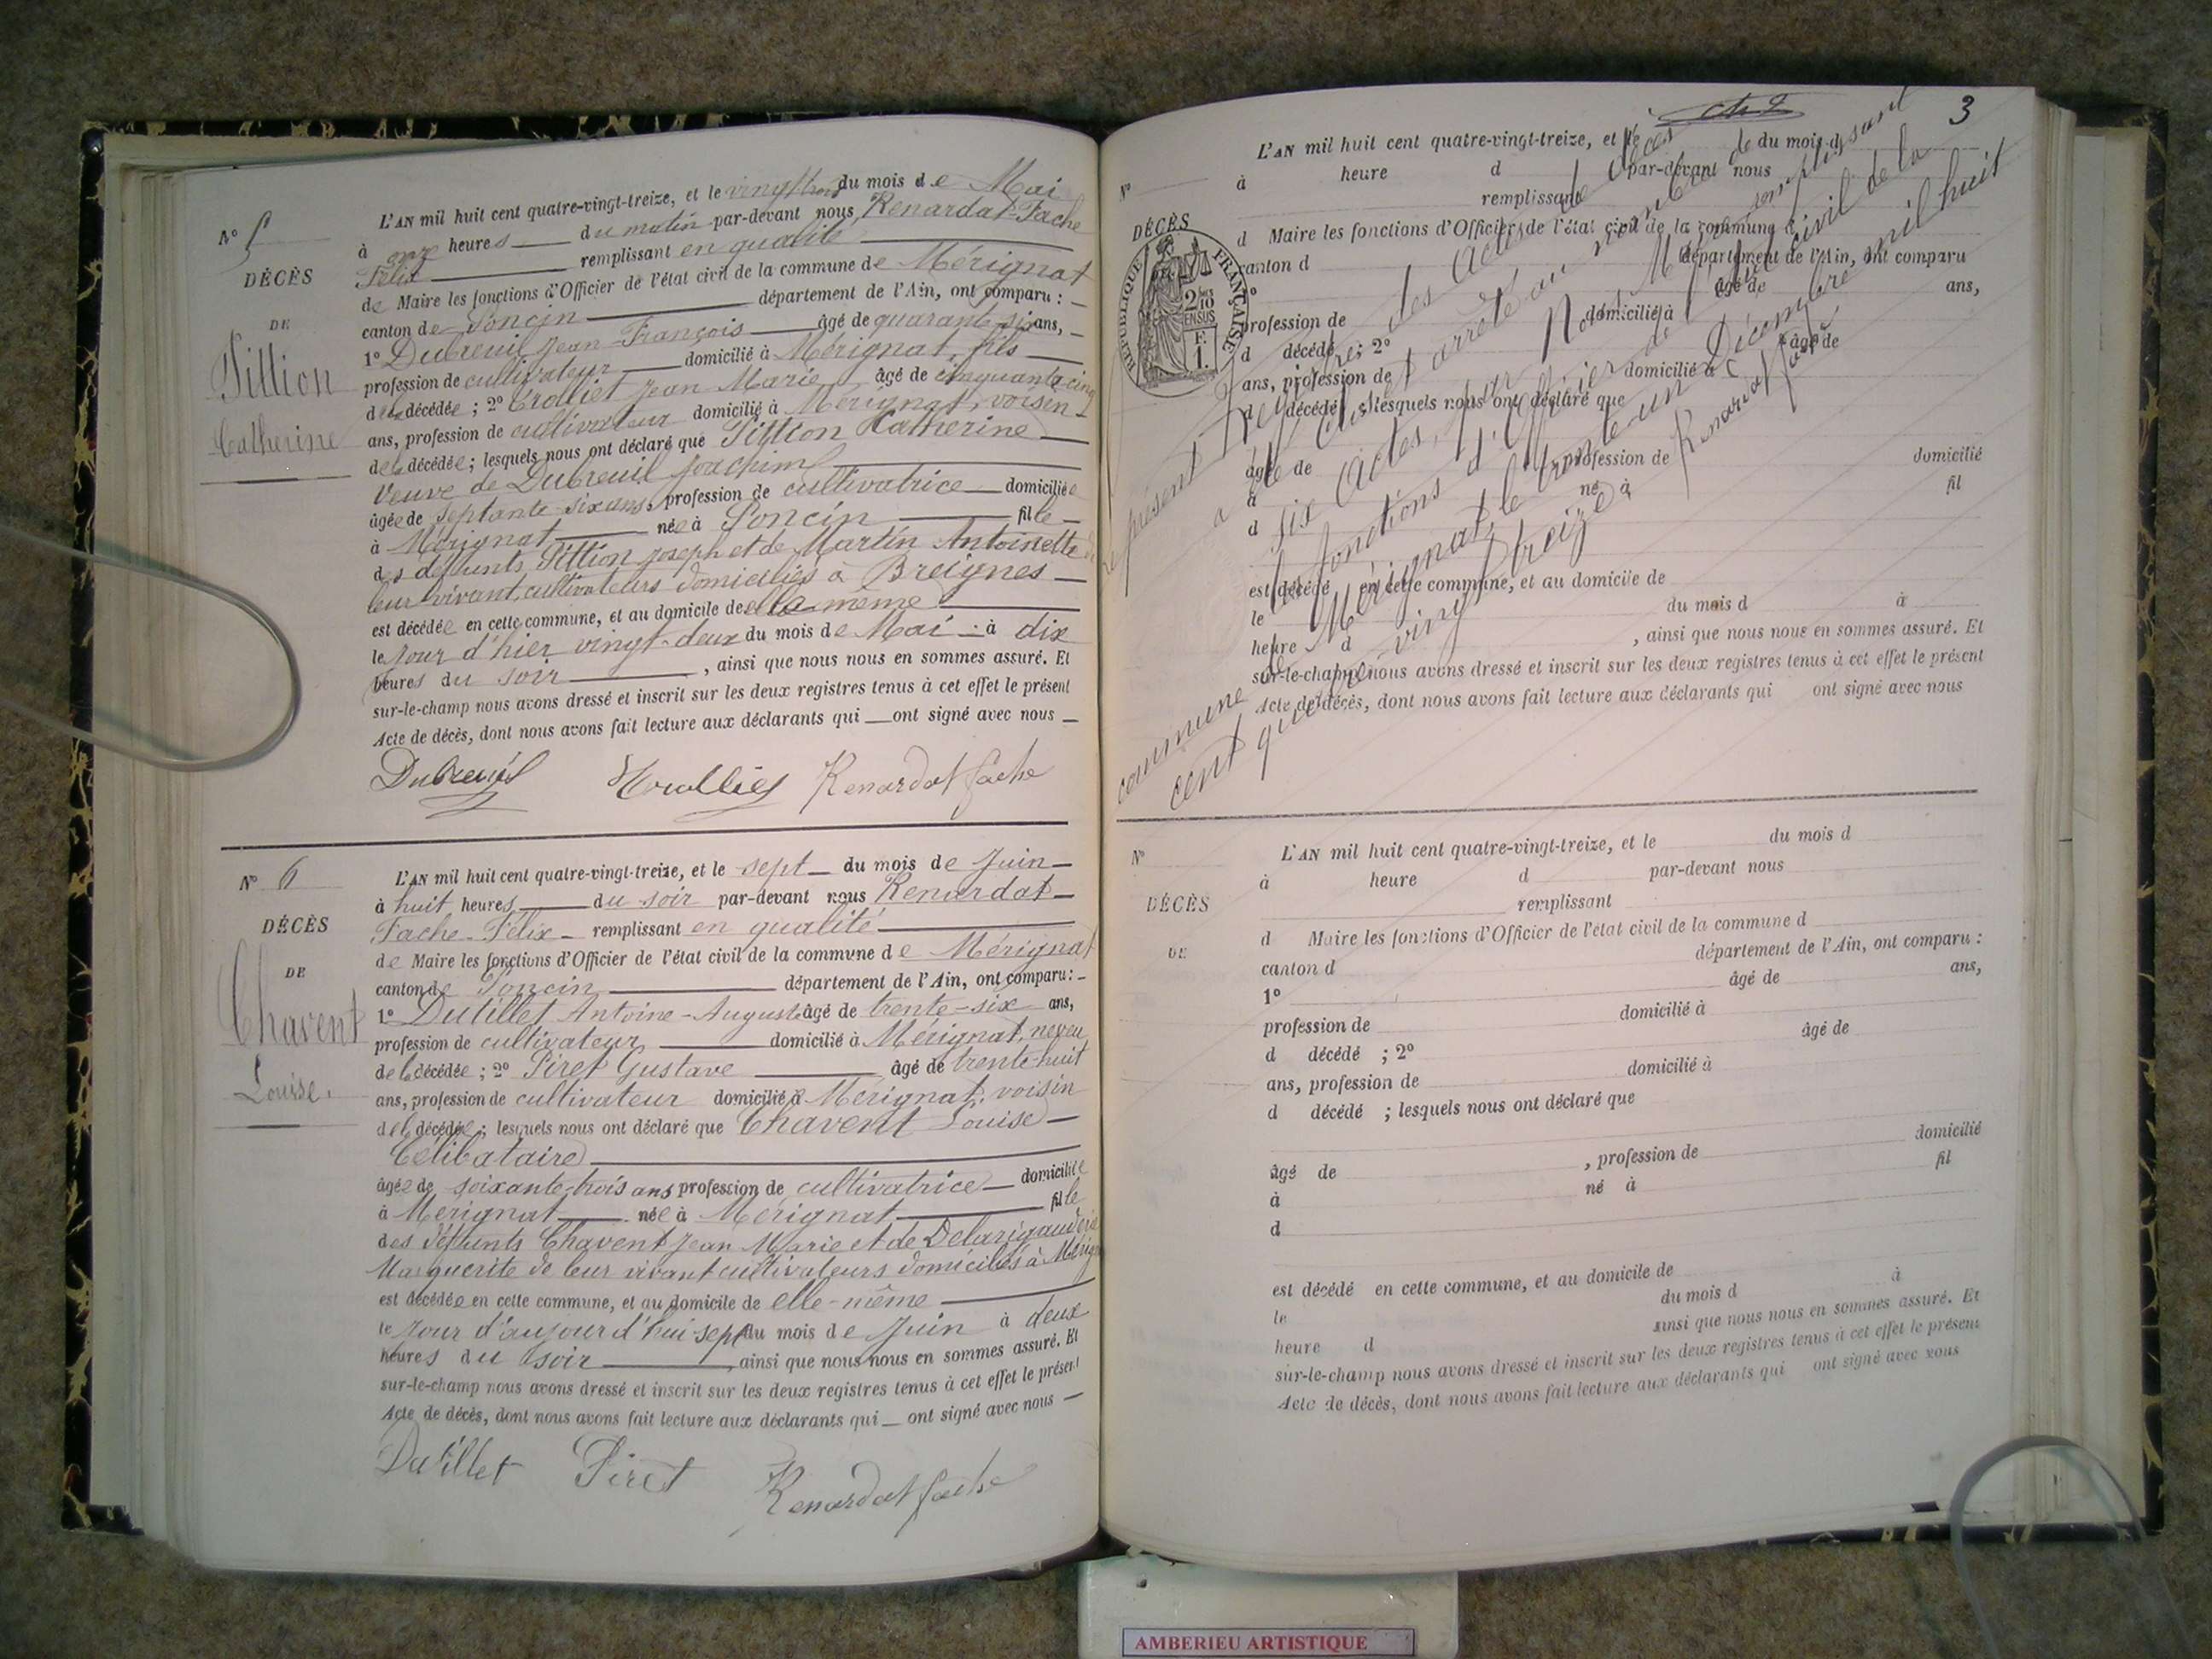 N° 5
DÉCÈS
DE
Pittion
Catherine
L'AN mil huit cent quatre-vingt-treize, et le vingt trois du mois de Mai
à onze heures du matin par-devant nous Renardat-Fache
Félix remplissant en qualité
de Maire les fonctions d'Officier de l'état civil de la commune de Mérignat
canton de Poncin département de l'Ain, ont comparu :
1° Dubreuil Jean-François âgé de quarante-six ans,
profession de cultivateur domicilié à Mérignat, fils
de la décédée ; 2° Trolliet Jean Marie âgé de cinquante-cinq
ans, profession de cultivateur domicilié à Mérignat, voisin
de la décédée ; lesquels nous ont déclaré que Pittion Catherine
Veuve de Dubreuil Joachim
âgée de septante-six ans, profession de cultivatrice domiciliée
à Mérignat née à Poncin fille
des défunts Pittion Joseph et de Martin Antoinette de
leur vivant, cultivateurs domiciliés à Breignes
est décédée en cette commune, et au domicile de elle même
le jour d'hier vingt-deux du mois de Mai à dix
heures du soir , ainsi que nous nous en sommes assuré. Et
sur-le-champ nous avons dressé et inscrit sur les deux registres tenus à cet effet le présent
Acte de décès, dont nous avons fait lecture aux déclarants qui ont signé avec nous
Dubreuil Trolliet Renardat fache
N° 6
DÉCÈS
DE
Chavent
Louise.
L'AN mil huit cent quatre-vingt-treize, et le sept du mois de Juin
à huit heures du soir par-devant nous Renardat
Fache-Félix remplissant en qualité
de Maire les fonctions d'Officier de l'état civil de la commune de Mérignat
canton de Poncin département de l'Ain, ont comparu :
1° Dutillet Antoine-Auguste âgé de trente-six ans,
profession de cultivateur domicilié à Mérignat, neveu
de la décédée ; 2° Piret Gustave âgé de trente-huit
ans, profession de cultivateur domicilié à Mérignat, voisin
de la décédée ; lesquels nous ont déclaré que Chavent Louise
Célibataire
âgée de soixante-trois ans profession de cultivatrice domiciliée
à Mérignat née à Mérignat fille
des défunts Chavent Jean Marie et de
Marguerite de leur vivant cultivateurs domiciliés à
est décédée en cette commune, et au domicile de elle-même
le jour d'aujourd'hui sept du mois de Juin à deux
heures du soir , ainsi que nous nous en sommes assuré. Et
sur-le-champ nous avons dressé et inscrit sur les deux registres tenus à cet effet le présent
Acte de décès, dont nous avons fait lecture aux déclarants qui ont signé avec nous
Dutillet Piret Renardat fache
3
N°
DÉCÈS
RÉPUBLIQUE FRANÇAISE
2/10
EN SUS
F.
1.
L'AN mil huit cent quatre-vingt-treize, et le du mois d
à heure d par-devant nous
remplissant
d Maire les fonctions d'Officier de l'état civil de la commune d
canton d département de l'Ain, ont comparu
1° âgé de ans,
profession de domicilié à
d décédé ; 2° âgé de
ans, profession de domicilié à
d décédé ; lesquels nous ont déclaré que
âgé de profession de domicilié
à né à fil
d
est décédé en cette commune, et au domicile de
le du mois d à
heure d , ainsi que nous nous en sommes assuré. Et
sur-le-champ nous avons dressé et inscrit sur les deux registres tenus à cet effet le présent
Acte de décès, dont nous avons fait lecture aux déclarants qui ont signé avec nous
Le présent Registre des Actes de décès
a été clos et arrêté au nombre de
six Actes, par Nous, Maire remplissant
les fonctions d'Officier de l'état civil de la
commune de Mérignat, le trente-un Décembre mil huit
cent quatre-vingt treize
Renardat fache
N°
DÉCÈS
DE
L'AN mil huit cent quatre-vingt-treize, et le du mois d
à heure d par-devant nous
remplissant
d Maire les fonctions d'Officier de l'état civil de la commune d
canton d département de l'Ain, ont comparu :
1° âgé de ans,
profession de domicilié à
d décédé ; 2° âgé de
ans, profession de domicilié à
d décédé ; lesquels nous ont déclaré que
âgé de , profession de domicilié
à né à fil
d
est décédé en cette commune, et au domicile de
le du mois d à
heure d ainsi que nous nous en sommes assuré. Et
sur-le-champ nous avons dressé et inscrit sur les deux registres tenus à cet effet le présent
Acte de décès, dont nous avons fait lecture aux déclarants qui ont signé avec nous
AMBERIEU ARTISTIQUE